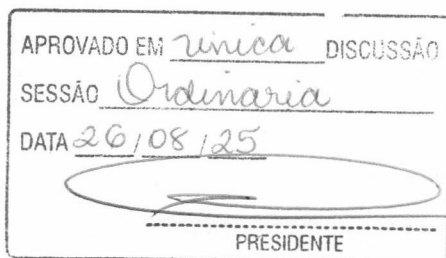 APROVADO EM unica DISCUSSÃO
SESSÃO Ordinaria
DATA 26/08/25
PRESIDENTE